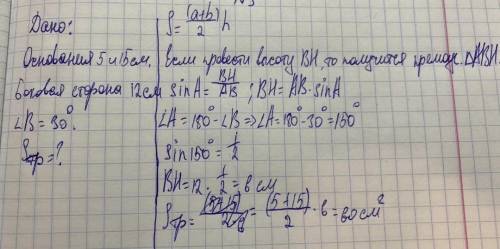 Дано:
Основания 5 и 15 см.
боковая сторона 12 см
∠B = 30°.
Sтр = ?
S = (a+b)/2 h
Если провести высоту BH то получится прямоуг. ΔABH.
sin A = BH/AB ; BH = AB · sin A
∠A = 180° - ∠B => ∠A = 180° - 30° = 150°
sin 150° = 1/2
BH = 12 · 1/2 = 6 см
Sтр = (5+15)/2 · 6 = (5+15)/2 · 6 = 60 см²